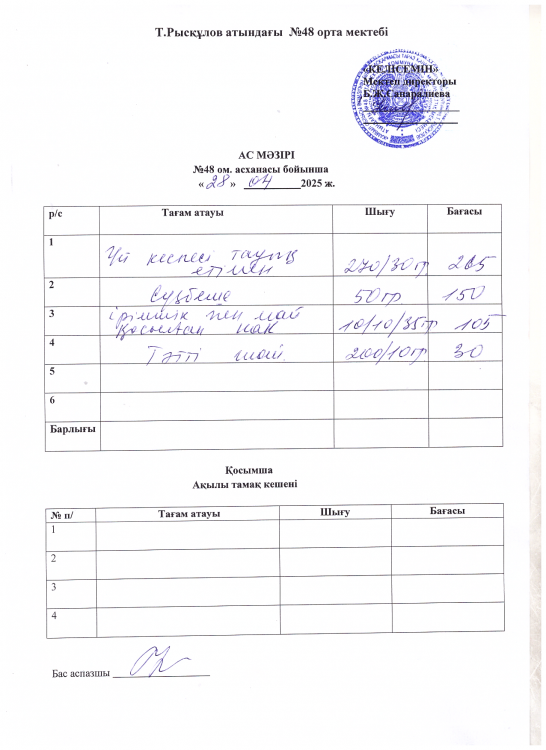 Т.Рысқұлов атындағы №48 орта мектебі
«КЕЛІСЕМІН»
Мектеп директоры
Б.Ж.Сапаралиева
АС МӘЗІРІ
№48 ом. асханасы бойынша
« 28 » 04 2025 ж.
р/с Тағам атауы Шығу Бағасы
1 Үй кеспесі тауық етімен 270/30гр 265
2 Сүзбеше 50гр 150
3 ірімшік пен май қосылған нан 10/10/35гр 105
4 Тәтті шай 200/10гр 30
5
6
Барлығы
Қосымша
Ақылы тамақ кешені
№ п/ Тағам атауы Шығу Бағасы
1
2
3
4
Бас аспазшы